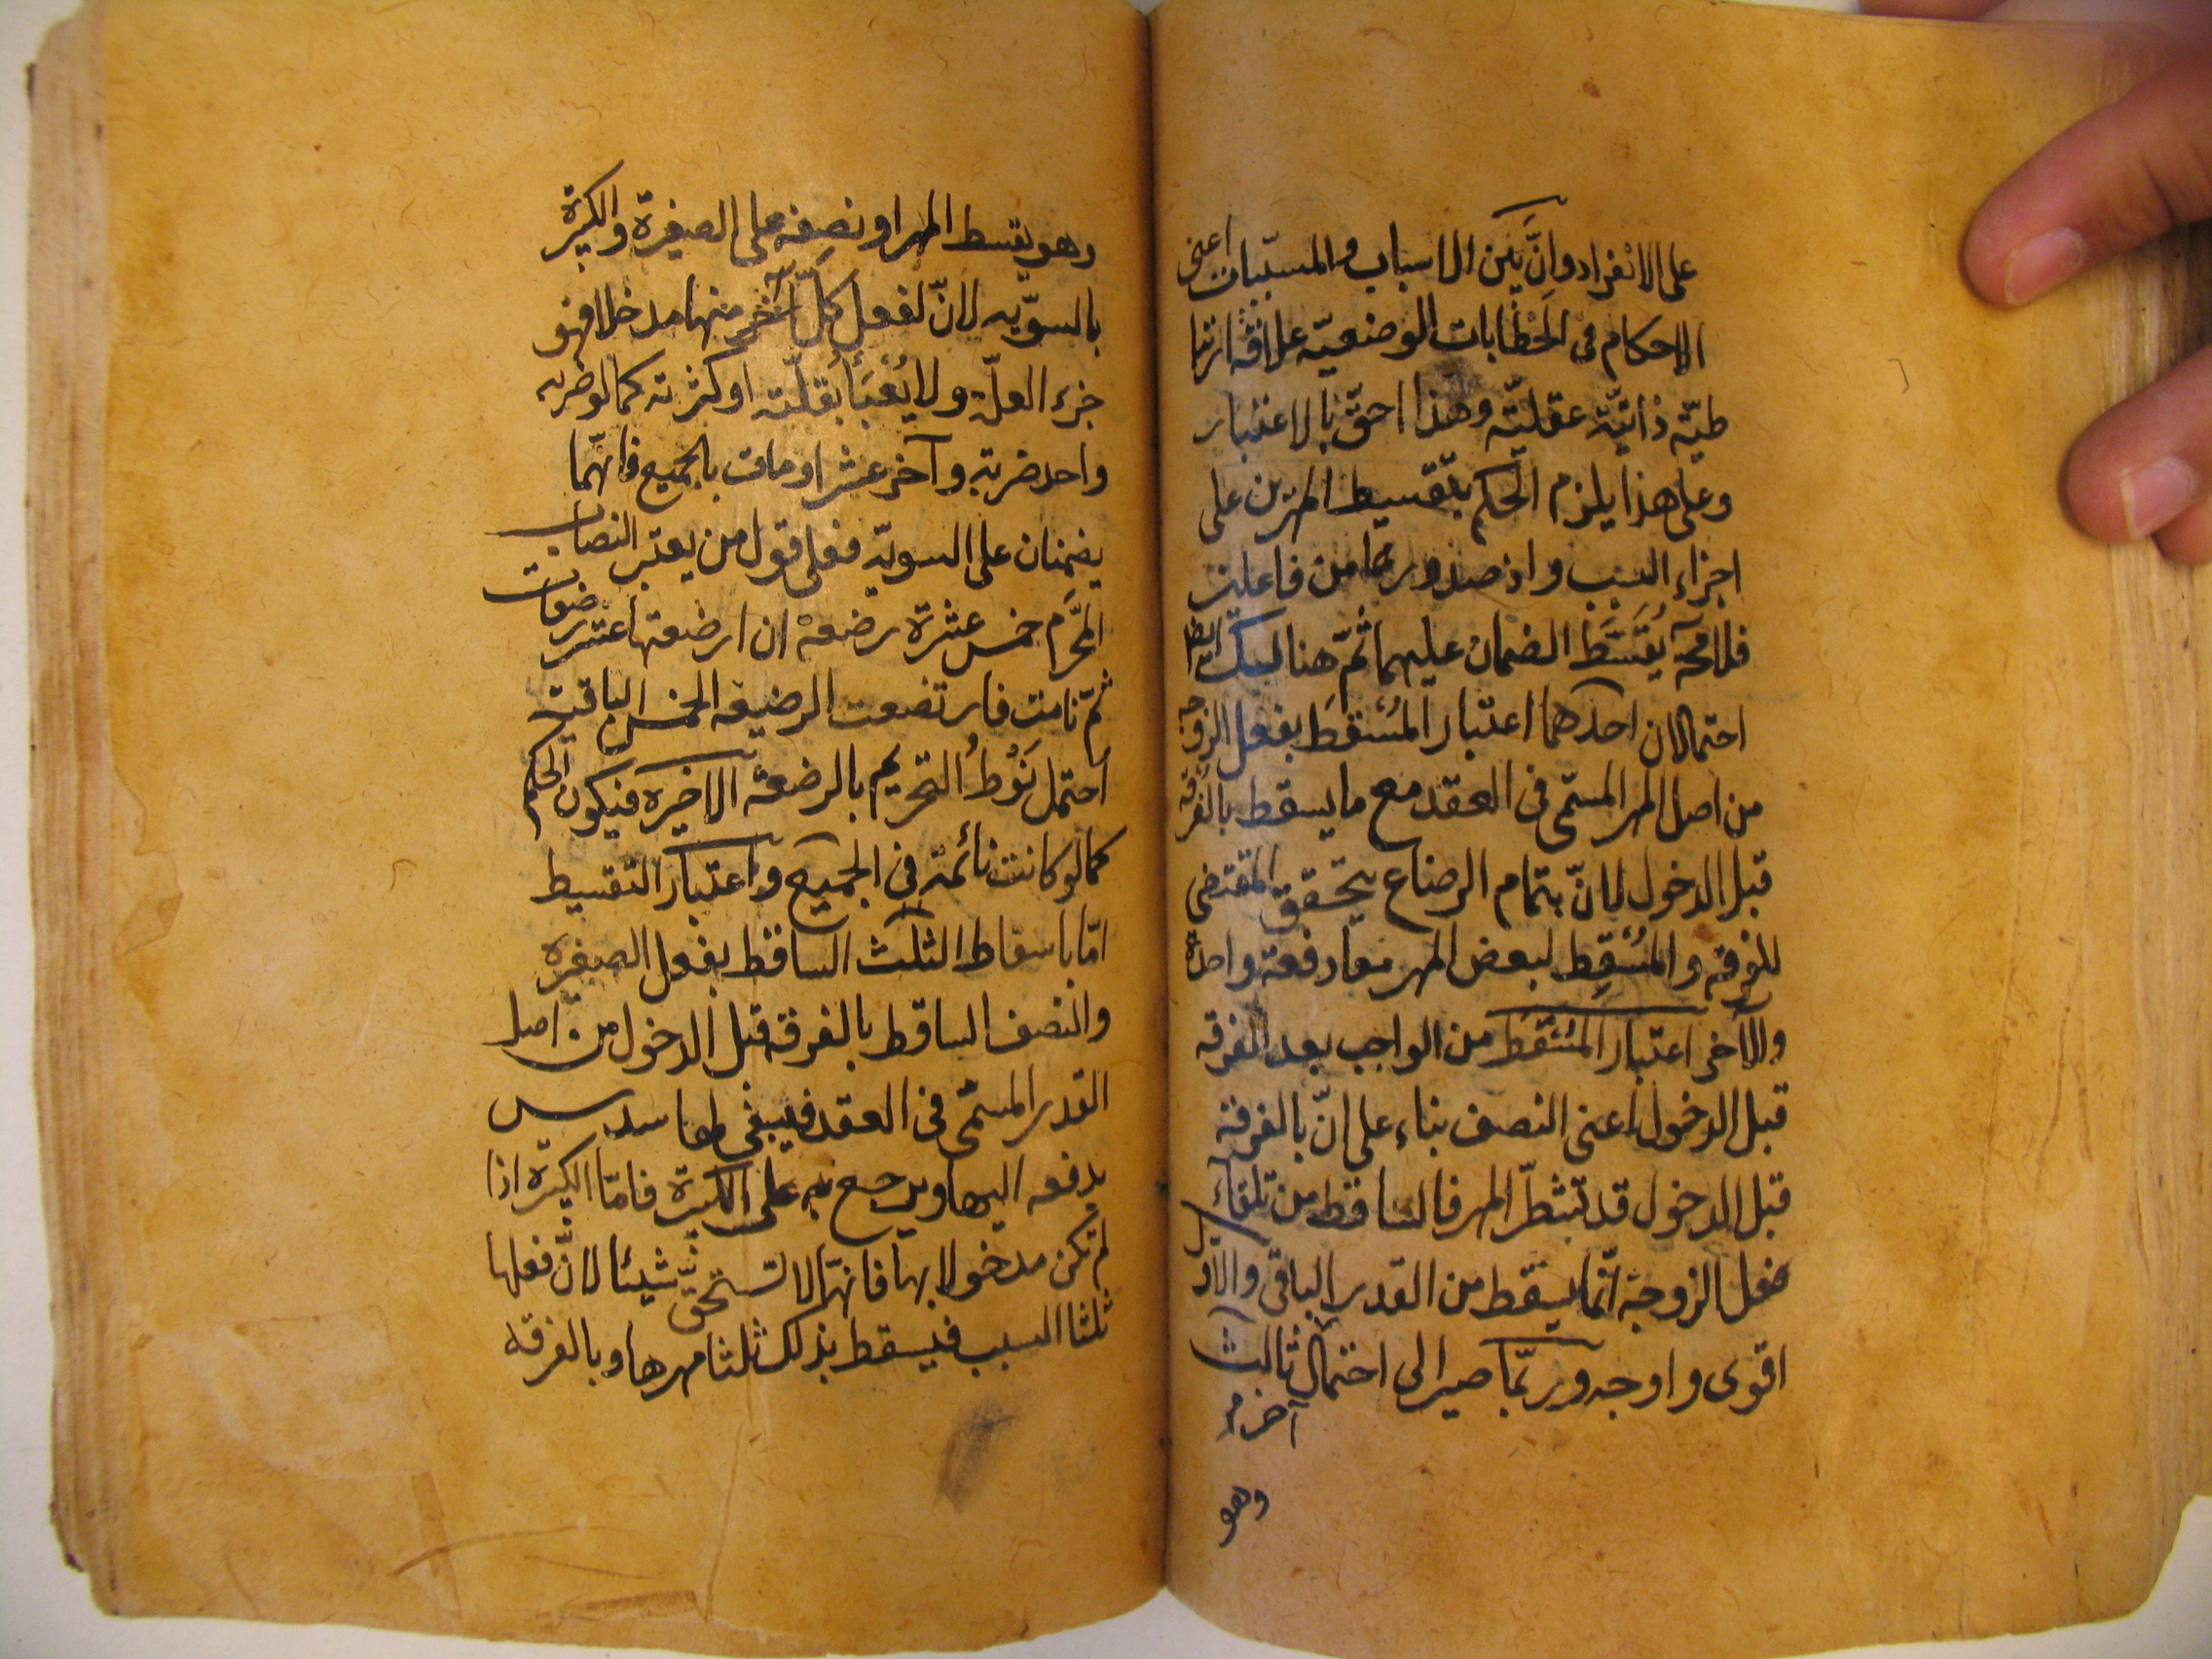 على الانفراد وانّ بين الاسباب والمسبّبات اعنى
الاحكام فى الخطابات الوضعيّه علاقه ارتبا
طيّة ذاتيّة عقليّه وهذا احقّ بالاعتبار
وعلى هذا يلزم الحكم بتقسيط المهرين على
اجزاء السبب واذ صدورها من فاعلين
فلا محة يُقَسَّط الضمان عليهما ثمّ هنالك ايضا
احتمالان احدهما اعتبار المُسْقَط بفعل الزوجه
من اصل المهر المسمّى فى العقد مع ما يسقط بالفُرقه
قبل الدخول لانّ بتمام الرضاع يتحقق المقتضى
للفرقه والمُسْقِط لبعض المهر معا دفعة واحدة
والآخر اعتبار المُسْقَط من الواجب بعد الفرقه
قبل الدخول اعنى النصف بناء على انّ بالفرقة
قبل الدخول قد تشطّر المهر فالساقط من تلقاء
فعل الزوجة انّما يسقط من القدر الباقى والاول
اقوى واوجه وربّما صير الى احتمال ثالث
آخر
وهو
وهو يقسط المهر او نصفه على الصغيرة والكبيرة
بالسوّيه لانّ لفعل كلّ منهما مدخلا فهو
جزء العلّة ولا يُعْبَأُ بقلّته او كثرته كما لو ضربه
واحد ضربة وآخر عشرا ومات بالجميع فانّهما
يضمنان على السويّه فعلى قول من يعتبر النصاب
المحَرِّم خمس عشرة رضعة ان ارضعتها عشر رضعات
ثمّ نامت فارتضعت الرضيعه الخمس الباقية
احتمل نَوْطُ التحريم بالرضعة الاخيره فيكون الحكم
كما لو كانت نائمة فى الجميع واعتبار التقسيط
امّا باسقاط الثلث الساقط بفعل الصغيره
والنصف الساقط بالفرقه قبل الدخول من اصل
القدر المسمّى فى العقد فيبقى لها سدس
يدفعه اليها ويرجع به على الكبيرة فامّا الكبيرة اذا
لم تكن مدخولا بها فانّها لا تستحقّ شيئا لانّ فعلها
ثلثا السبب فيسقط بذلك ثلثا مهرها وبالفرقه